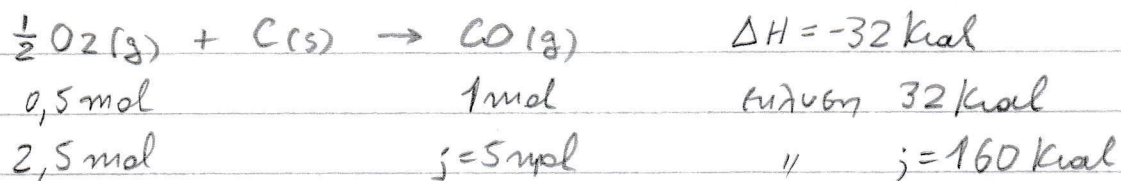 ½ O2(g) + C(s) → CO(g) ΔH = -32 Kcal
0,5 mol 1 mol έκλυση 32 Kcal
2,5 mol ; = 5 mol " ; = 160 Kcal